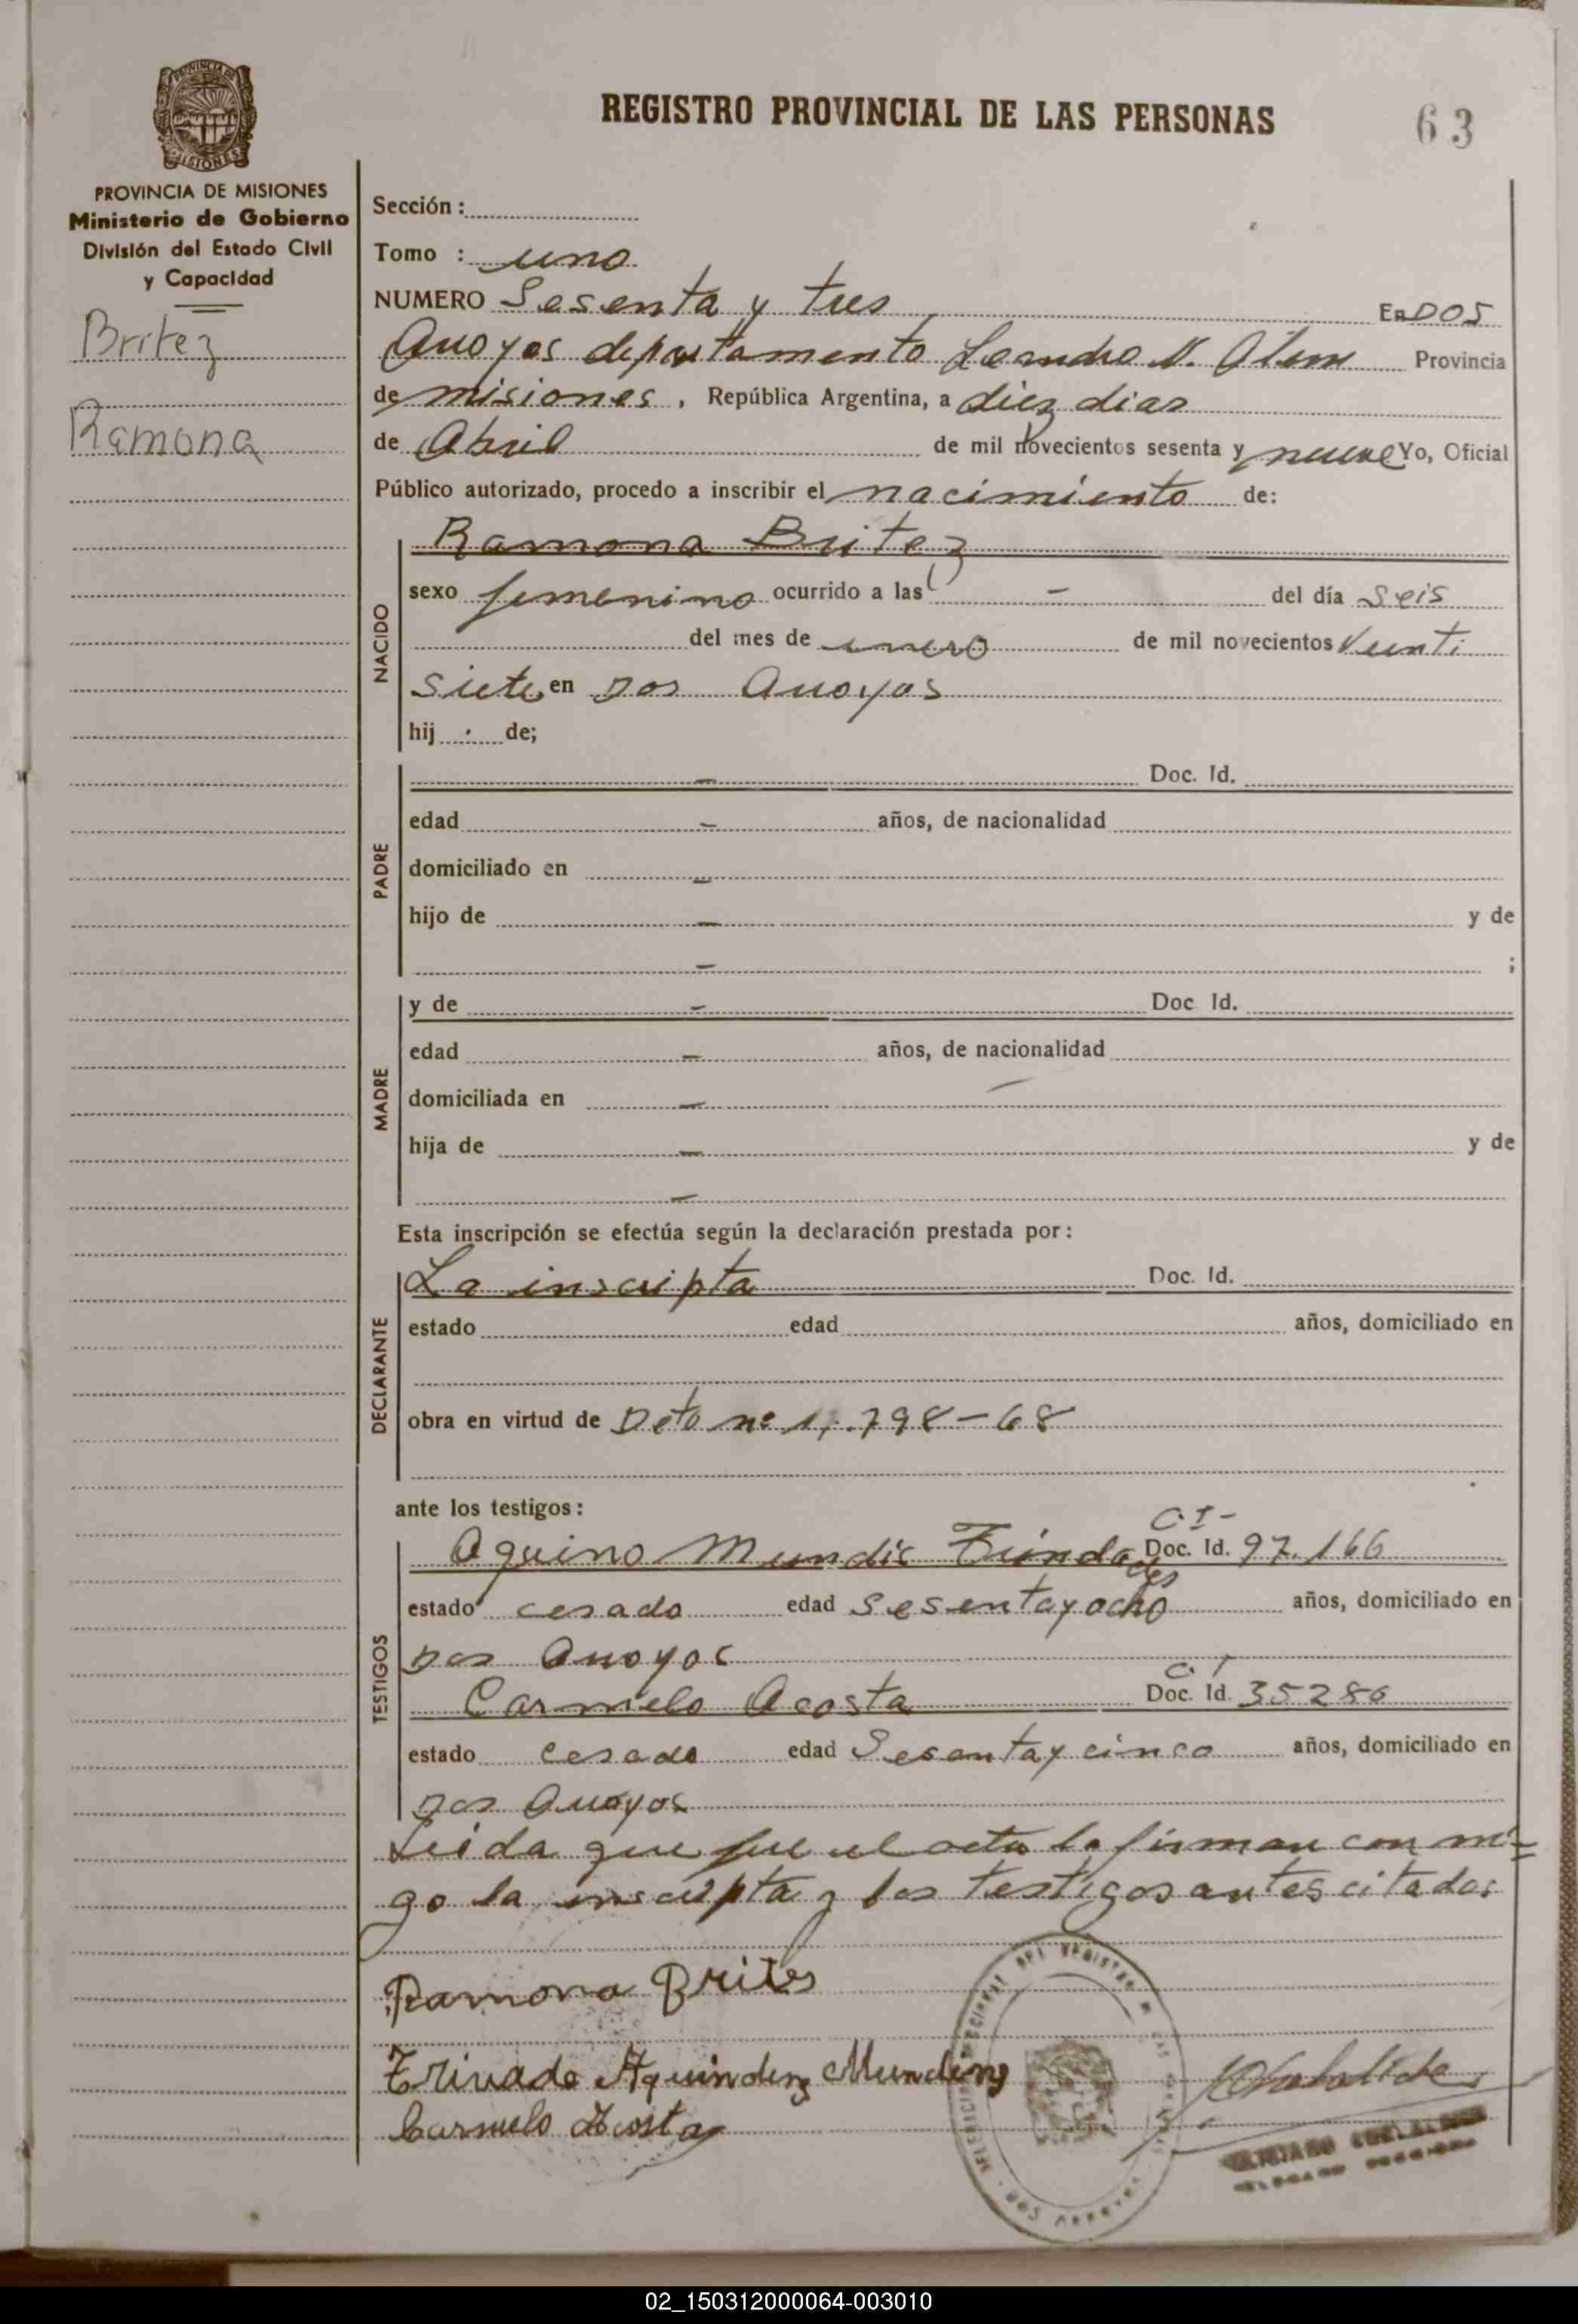 PROVINCIA DE MISIONES
REGISTRO PROVINCIAL DE LAS PERSONAS
63
PROVINCIA DE MISIONES
Ministerio de Gobierno
División del Estado Civil
y Capacidad
Britez
Ramona
Sección :
Tomo : uno
NUMERO Sesenta y tres En DOS
Arroyos departamento Leandro N. Alem Provincia
de misiones, República Argentina, a diez dias
de Abril de mil novecientos sesenta y nueve Yo, Oficial
Público autorizado, procedo a inscribir el nacimiento de:
NACIDO
Ramona Britez
sexo femenino ocurrido a las - del día seis
del mes de enero de mil novecientos Veinti
siete en Dos Arroyos
hij . de;
PADRE
- Doc. Id.
edad - años, de nacionalidad
domiciliado en -
hijo de - y de
- ;
MADRE
y de - Doc Id.
edad - años, de nacionalidad
domiciliada en -
hija de - y de
-
Esta inscripción se efectúa según la declaración prestada por:
DECLARANTE
La inscripta Doc. Id.
estado edad años, domiciliado en
obra en virtud de Deto nº 1,.798-68
ante los testigos:
TESTIGOS
C.I-
Aquino Mundis Doc. Id. 97.166
estado casado edad sesenta y ocho años, domiciliado en
Dos Arroyos
C.I
Carmelo Acosta Doc. Id. 35286
estado casado edad Sesenta y cinco años, domiciliado en
Dos Arroyos
Leida que fue el acta la firman con mi=
go la inscripta y los testigos antes citados
Ramona Brites
Aquindez Mundez
Carmelo Acosta
02_150312000064-003010